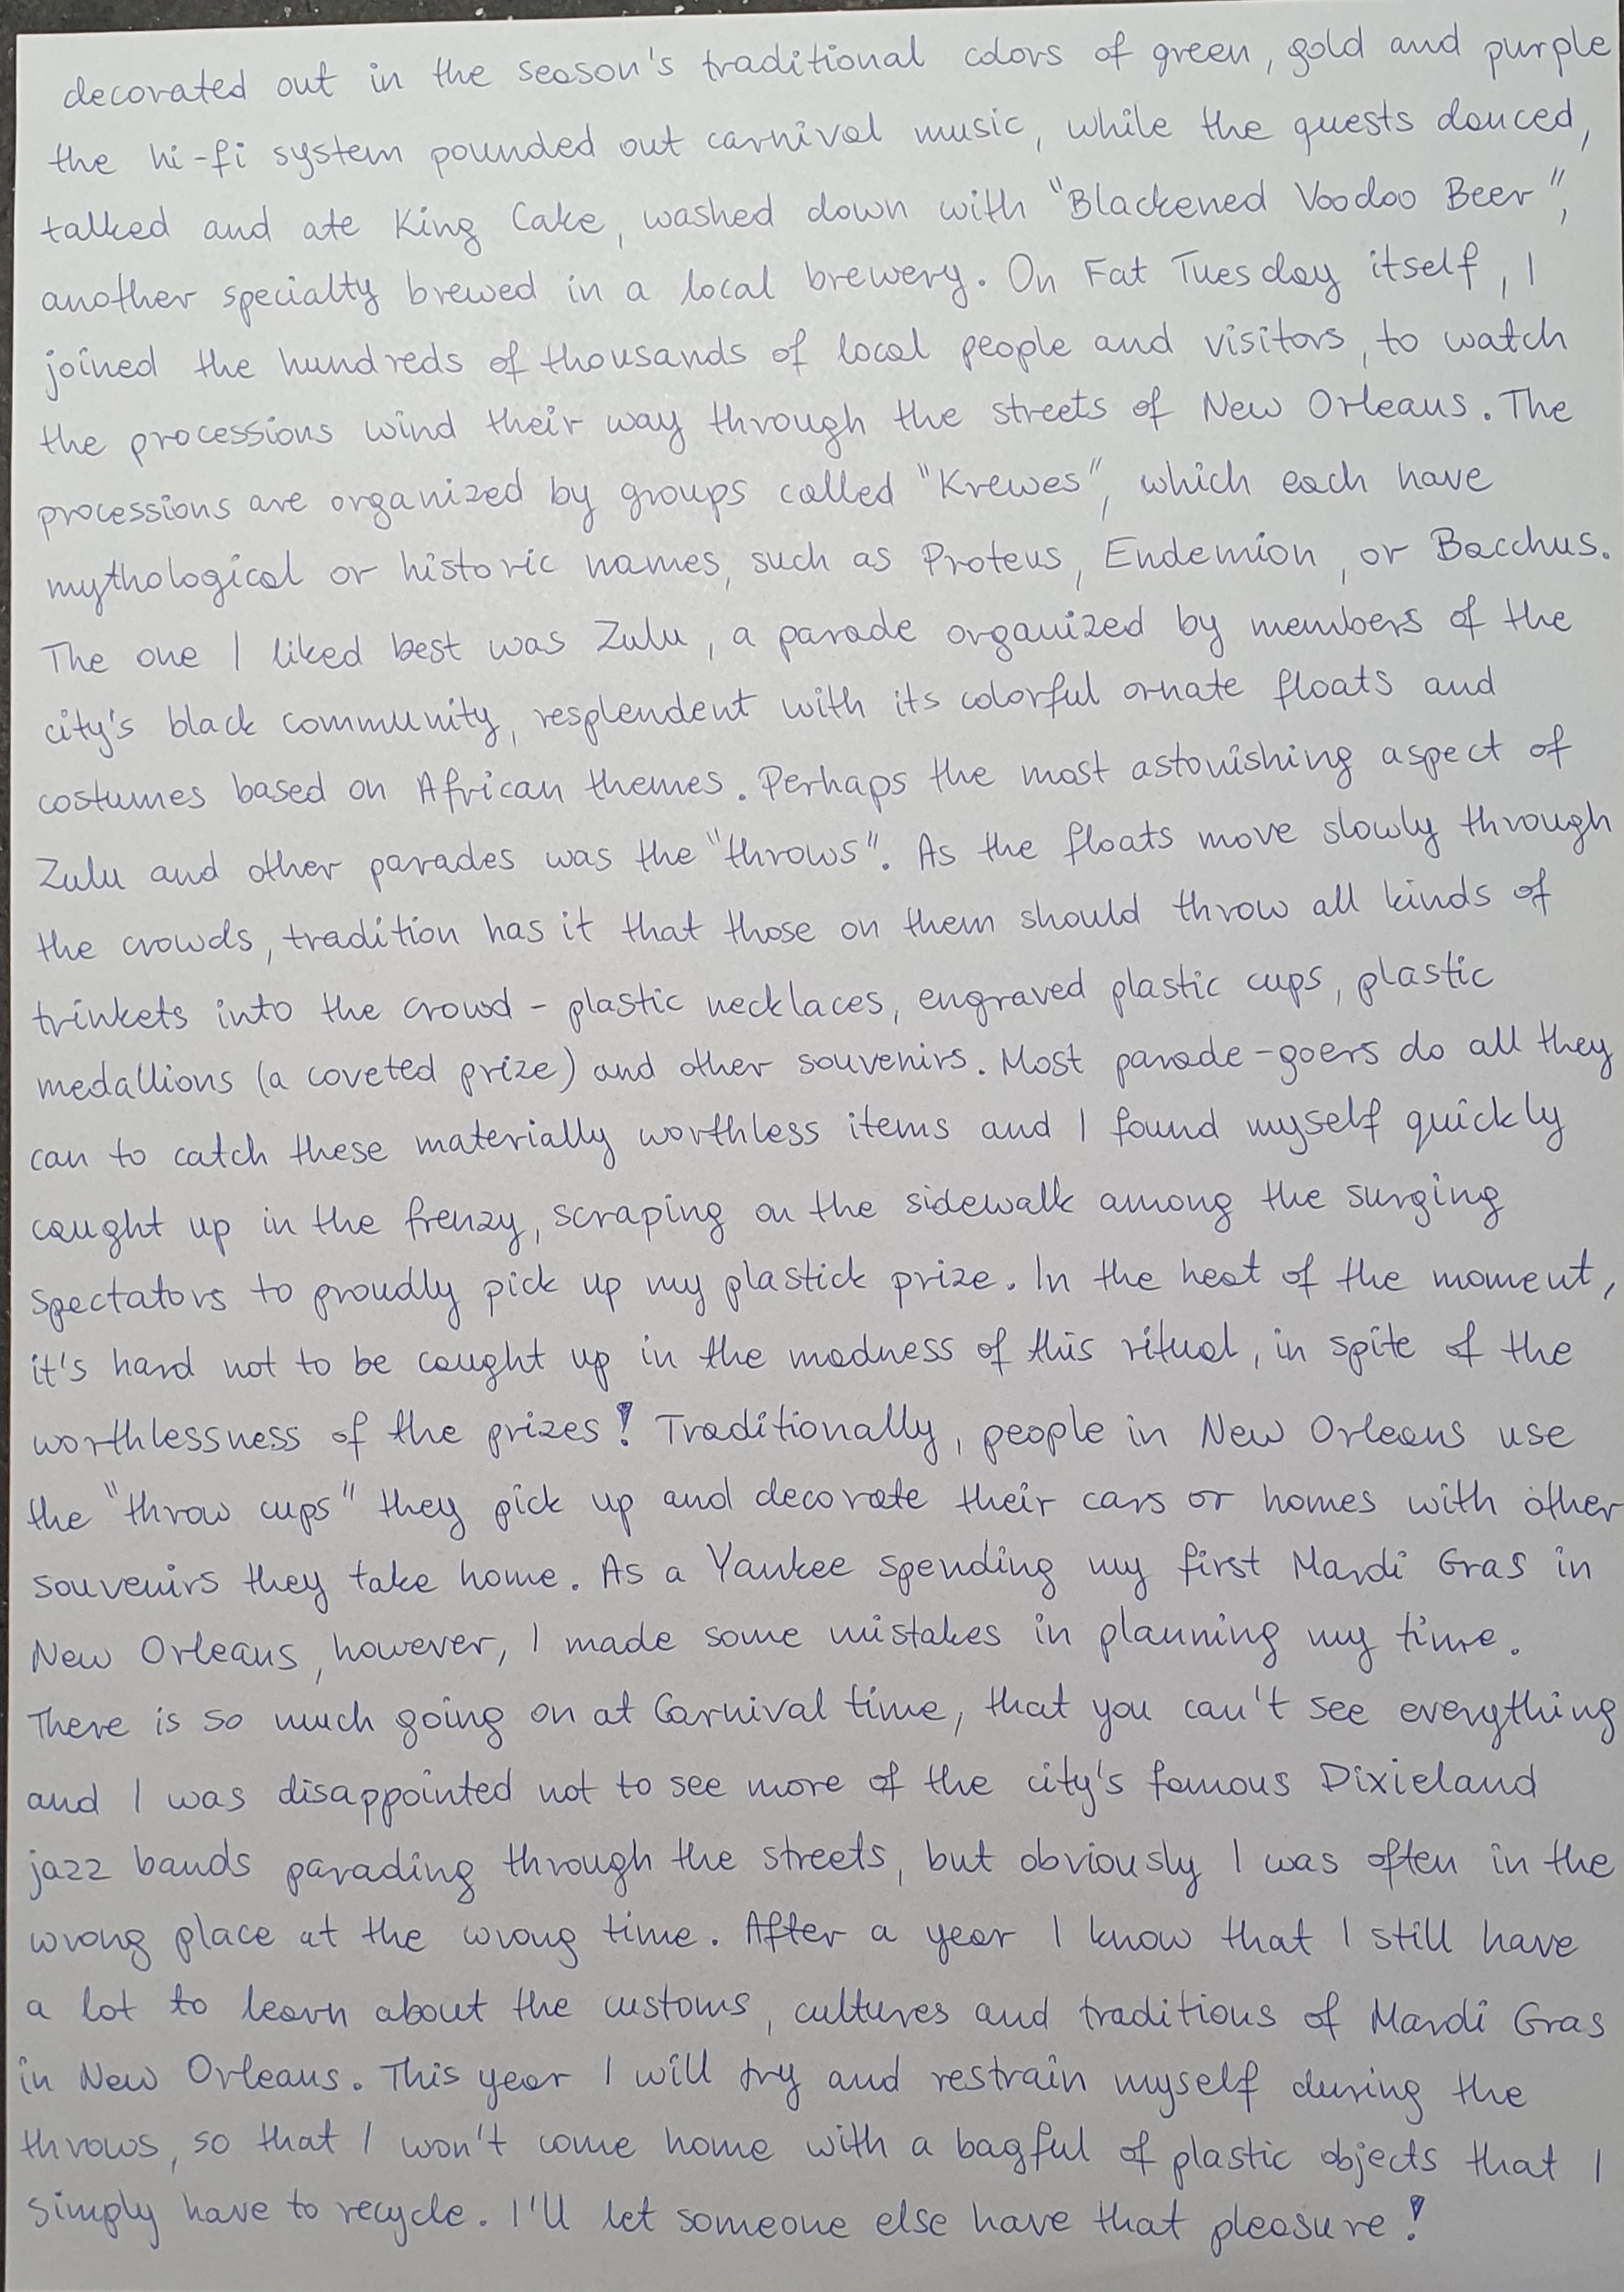 decorated out in the season's traditional colors of green, gold and purple
the hi-fi system pounded out carnival music, while the guests danced,
talked and ate King Cake, washed down with "Blackened Voodoo Beer",
another specialty brewed in a local brewery. On Fat Tuesday itself, I
joined the hundreds of thousands of local people and visitors, to watch
the processions wind their way through the streets of New Orleans. The
processions are organized by groups called "Krewes", which each have
mythological or historic names, such as Proteus, Endemion, or Bacchus.
The one I liked best was Zulu, a parade organized by members of the
city's black community, resplendent with its colorful ornate floats and
costumes based on African themes. Perhaps the most astonishing aspect of
Zulu and other parades was the "throws". As the floats move slowly through
the crowds, tradition has it that those on them should throw all kinds of
trinkets into the crowd - plastic necklaces, engraved plastic cups, plastic
medallions (a coveted prize) and other souvenirs. Most parade-goers do all they
can to catch these materially worthless items and I found myself quickly
caught up in the frenzy, scraping on the sidewalk among the surging
spectators to proudly pick up my plastick prize. In the heat of the moment,
it's hard not to be caught up in the madness of this ritual, in spite of the
worthlessness of the prizes! Traditionally, people in New Orleans use
the "throw cups" they pick up and decorate their cars or homes with other
souvenirs they take home. As a Yankee spending my first Mardi Gras in
New Orleans, however, I made some mistakes in planning my time.
There is so much going on at Carnival time, that you can't see everything
and I was disappointed not to see more of the city's famous Dixieland
jazz bands parading through the streets, but obviously I was often in the
wrong place at the wrong time. After a year I know that I still have
a lot to learn about the customs, cultures and traditions of Mardi Gras
in New Orleans. This year I will try and restrain myself during the
throws, so that I won't come home with a bagful of plastic objects that I
simply have to recycle. I'll let someone else have that pleasure!